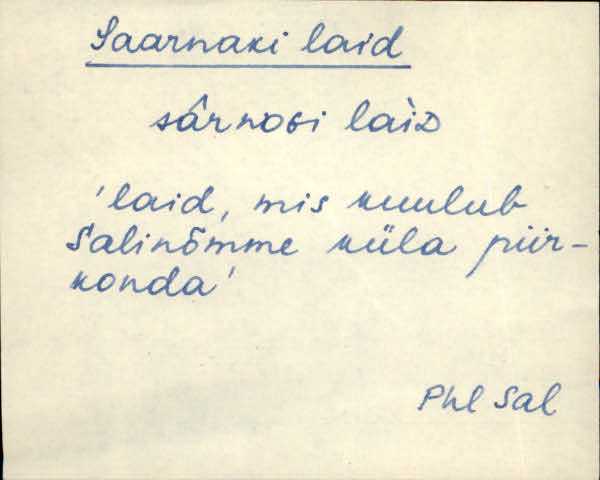 Saarnaki laid
sârnoGi làiD
'laid, mis kuulub
Salinõmme küla piir-
konda'
Phl Sal